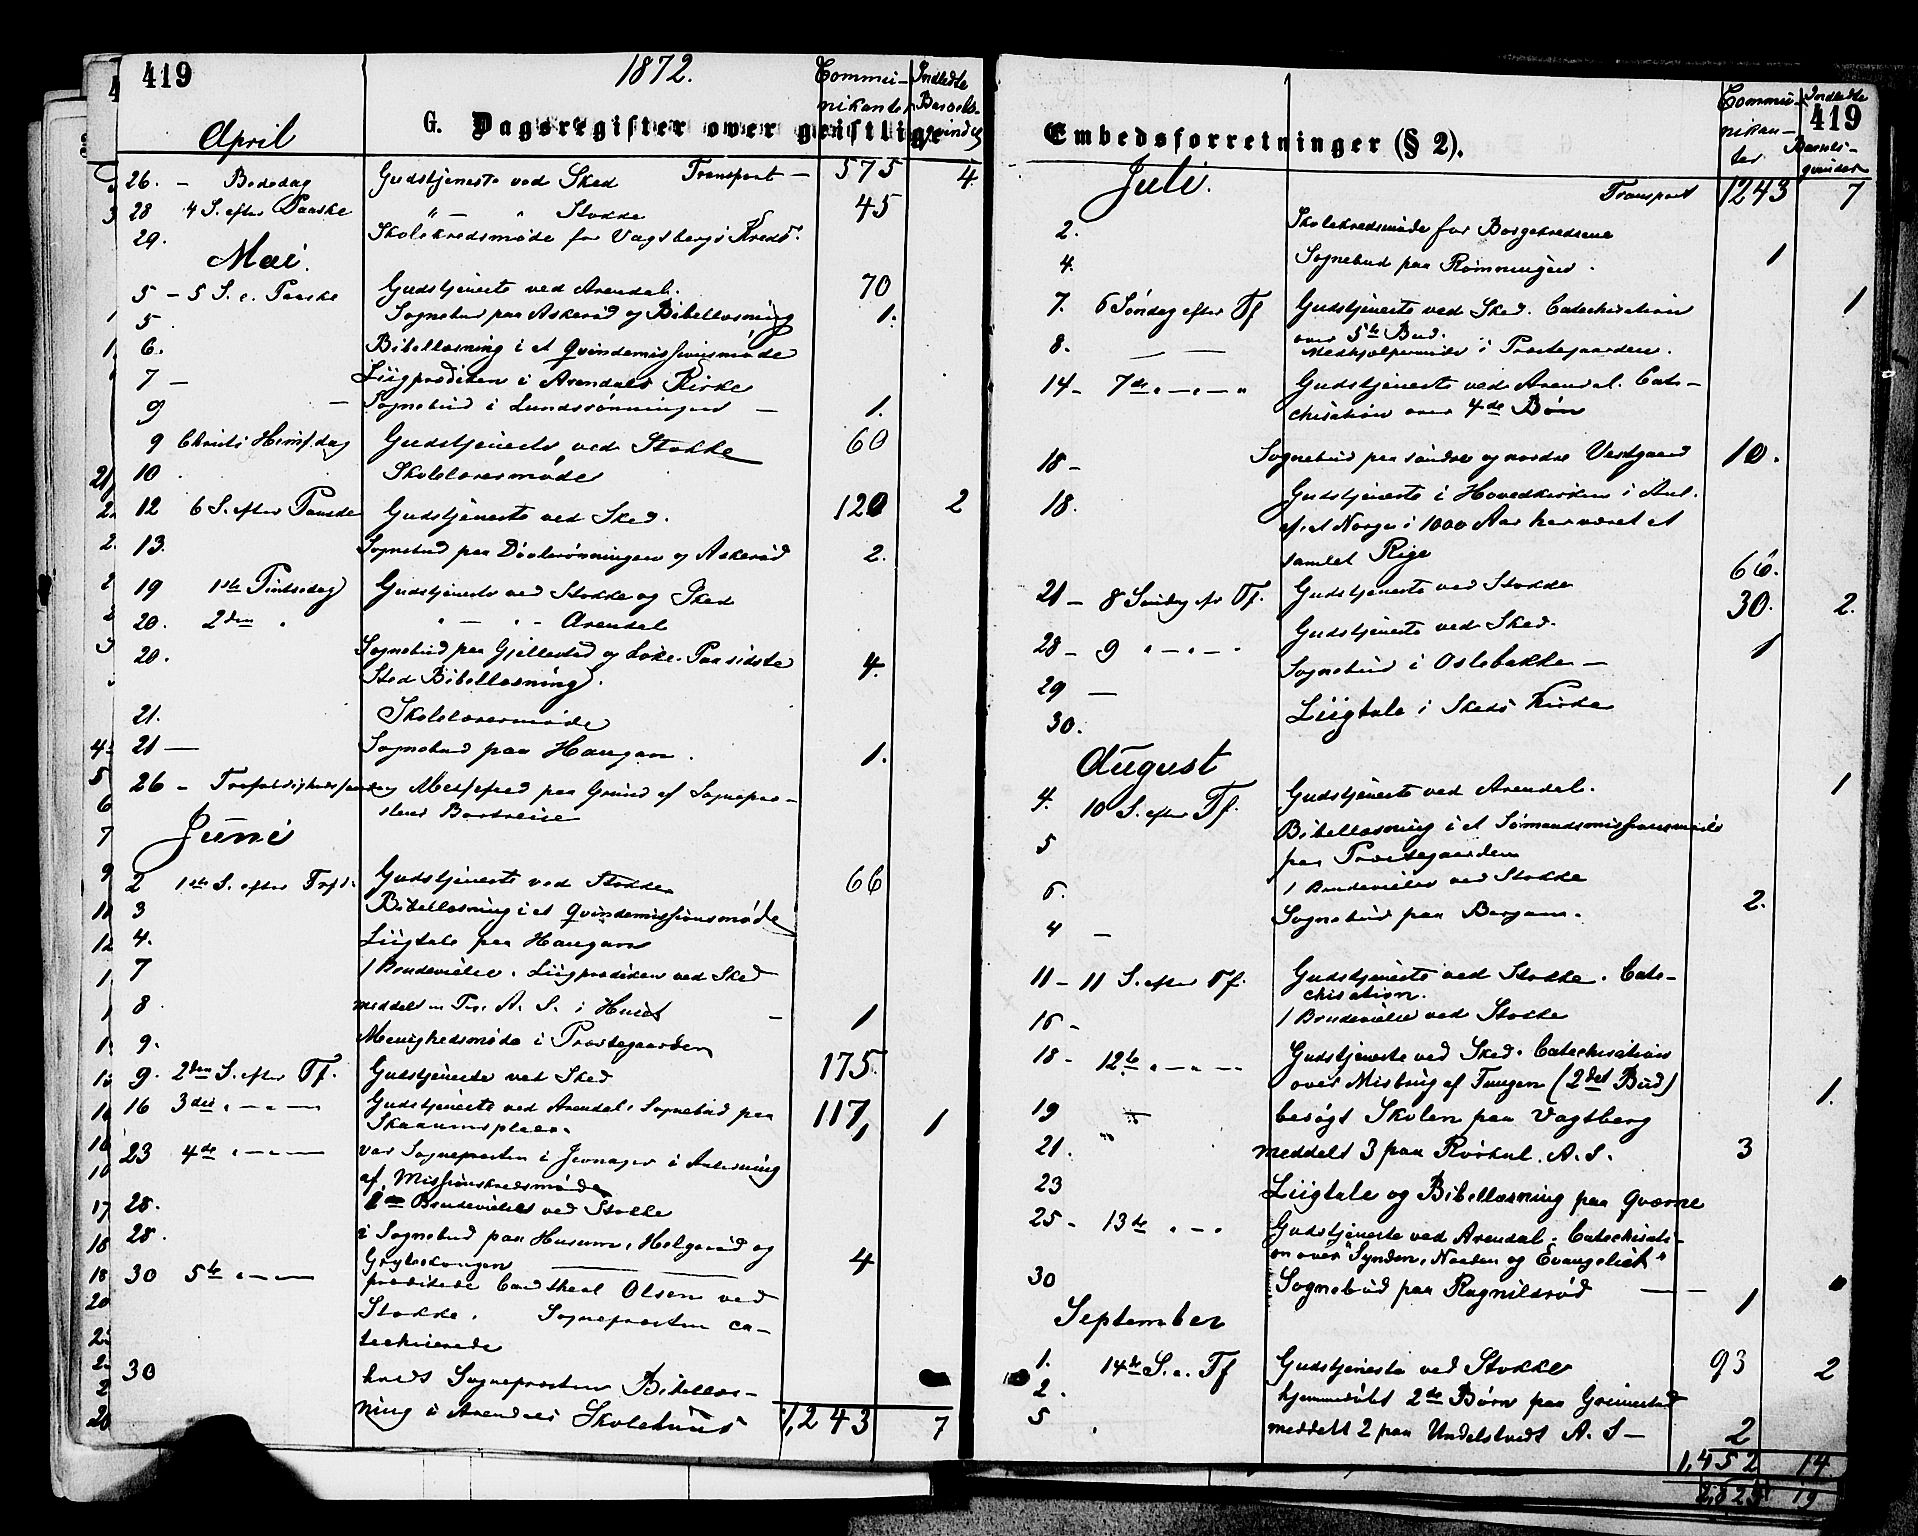 419
1872.
Commu-
nikanter
Indledte
Barsels-
qvinder
G. Dagsregister over geistlige
April
26. - Bededag Gudstjeneste ved Sked Transport - 575 4
28 4 S. efter Paaske " - " Stokke 45
29. Skolekredsmøde for Vagsbergs Kreds.
Mai.
5 - 5 S. e. Paaske Gudstjeneste ved Arendal. 70
5 Sognebud paa Askerød og Bibellæsning 1.
6. Bibellæsning i et Qvindemissionsmøde
7 - Liigprædiken i Arendals Kirke
9 - Sognebud i Lundsrønningen - 1.
9 Christi Himf.dag Gudstjeneste ved Stokke 60
10 Skolelærermøde
12 6 S. efter Paaske Gudstjeneste ved Sked. 120 2
13. Sognebud paa Døvlerønningen og Askerød 2.
19 1ste Pintsedag Gudstjeneste ved Stokke og Sked
20. 2den " " - " - Arendal
20. Sognebud paa Gjellestad og Løke. Paa sidste 4.
Sted Bibellæsning.
21. Skolelærermøde
21 - Sognebud paa Haugan. 1.
26 - Trefoldighedssøndag Messefald paa Grund af Sognepræ-
stens Bortreise
Juni
2 1ste S. efter Trfd. Gudstjeneste ved Stokke 66
3 Bibellæsning i et Qvindemissionsmøde
4. Liigtale paa Haugan
7 1 Brudevielse. Liigprædiken ved Sked
8 meddelt en Prs. A. S. i Huset - 1
9. Menighedsmøde i Præstegaarden
9. 2den S. efter Tf. Gudstjeneste ved Sked 175.
16 3die " - " - Gudstjeneste ved Arendal. Sognebud paa 117, 1
Skaanumsplads. 1
23 4de " - " - var Sognepræsten i Jevnager i Anledning
af Missionskredsmøde
28. 1 Brudevielse ved Stokke
28. i Sognebud paa Husum, Helgerød og
Gryteskougen 4
30 5te " - " - prædikede Cand theol Olsen ved
Stokke. Sognepræsten ca-
techiserede
30 holdt Sognepræsten Bibellæs-
ning i Arendals Skolehuus 1,243 7
419
Commu-
nikan-
ter
Indledte
Barsels-
qvinder
Embedsforretninger (§ 2).
Juli.
Transport 1243 7
2. Skolekredsmøde for Borgekredsene
4. Sognebud paa Rømningen. 1
7. 6 Søndag efter Tf Gudstjeneste ved Sked. Catechisation 1
over 5te Bud.
8. - - Medhjælpermøde i Præstegaarden.
14 - 7de " - " - " Gudstjeneste ved Arendal. Cate-
chisation over 4de Bøn
18 - Sognebud paa søndre og nordre Vestgaard 10.
18. Gudstjeneste i Hovedkirken i Anl.
af, at Norge i 1000 Aar har været et
samlet Rige
21 - 8 Søndag eft Tf. Gudstjeneste ved Stokke 66.
28 - 9 " - " - " Gudstjeneste ved Sked. 30. 2.
29 - Sognebud i Oslebakke - 1
30. Liigtale i Skeds Kirke
August
4. 10 S. efter Tf. Gudstjeneste ved Arendal. 1
5 Bibellæsning i et Sømandsmissionsmøde
paa Præstegaarden
6. 1 Brudevielse ved Stokke
4 - Sognebud paa Bergan. 2.
11 - 11 S. efter Tf. Gudstjeneste ved Stokke. Cate-
chisation.
16 - 1 Brudevielse ved Stokke
18 - 12te " - " - " Gudstjeneste ved Sked. Catechisation
over Misbrug af Tungen (2det Bud) 1.
19 - besøgt Skolen paa Vagsberg
21. " meddelt 3 paa Rørkul. A. S. 3
23 Liigtale og Bibellæsning paa Qværne
25 - 13de " - " Gudstjeneste ved Arendal. Catechisati-
on over "Synden, Naaden og Evangeliet"
30 Sognebud paa Ragnildsrød - - 1
September
1. 14de S. e. Tf Gudstjeneste ved Stokke 93 2
2. hjemmedøbt 2de Børn paa Grimestad
5 meddelt 2 paa Undelstvedt A. S - 2
1,452 14